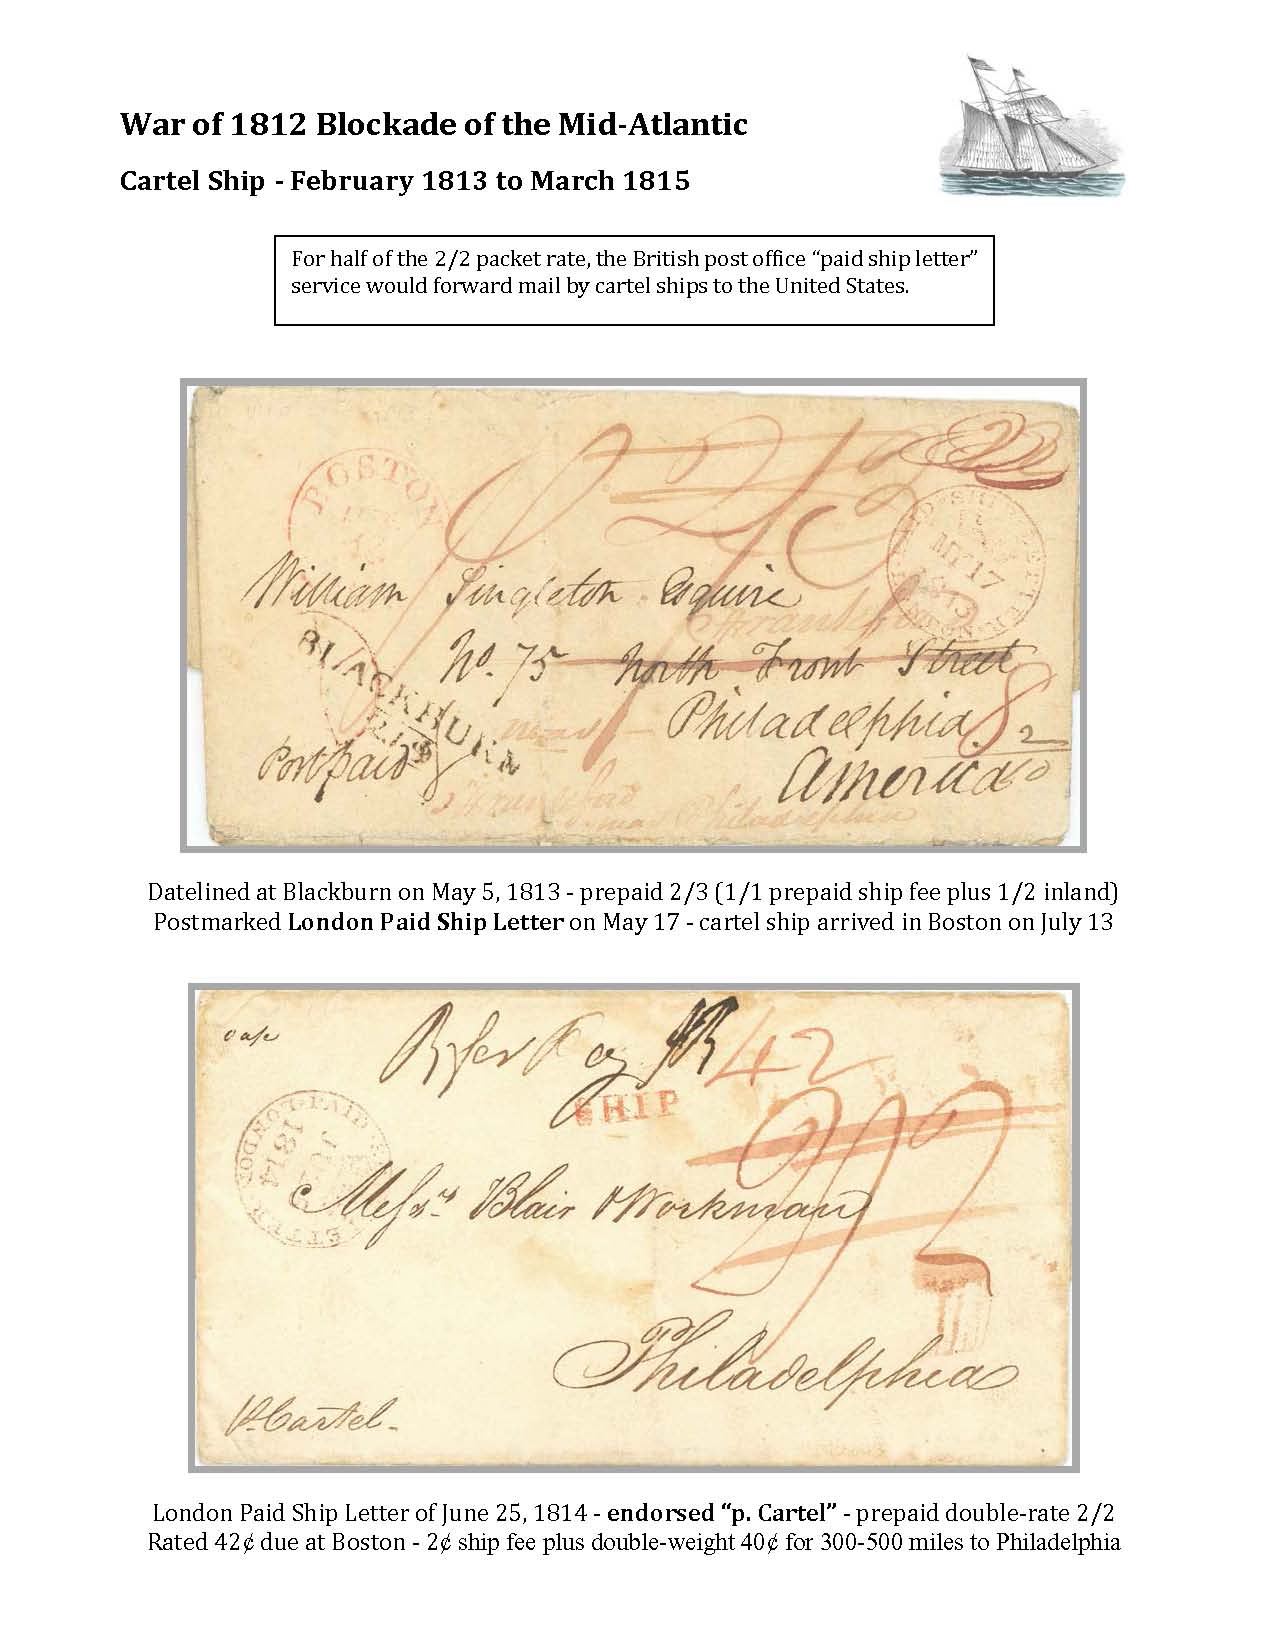 War of 1812 Blockade of the Mid-Atlantic
Cartel Ship - February 1813 to March 1815
For half of the 2/2 packet rate, the British post office “paid ship letter”
service would forward mail by cartel ships to the United States.
BOSTON
MY 17
1813
William Singleton Esquire
No. 75 North Front Street
BLACKBURN
Philadelphia
Post paid
America
Datelined at Blackburn on May 5, 1813 - prepaid 2/3 (1/1 prepaid ship fee plus 1/2 inland)
Postmarked London Paid Ship Letter on May 17 - cartel ship arrived in Boston on July 13
42
SHIP
PAID
LONDON
1814
Messrs Blair & Workman
Philadelphia
p. Cartel -
London Paid Ship Letter of June 25, 1814 - endorsed “p. Cartel” - prepaid double-rate 2/2
Rated 42¢ due at Boston - 2¢ ship fee plus double-weight 40¢ for 300-500 miles to Philadelphia